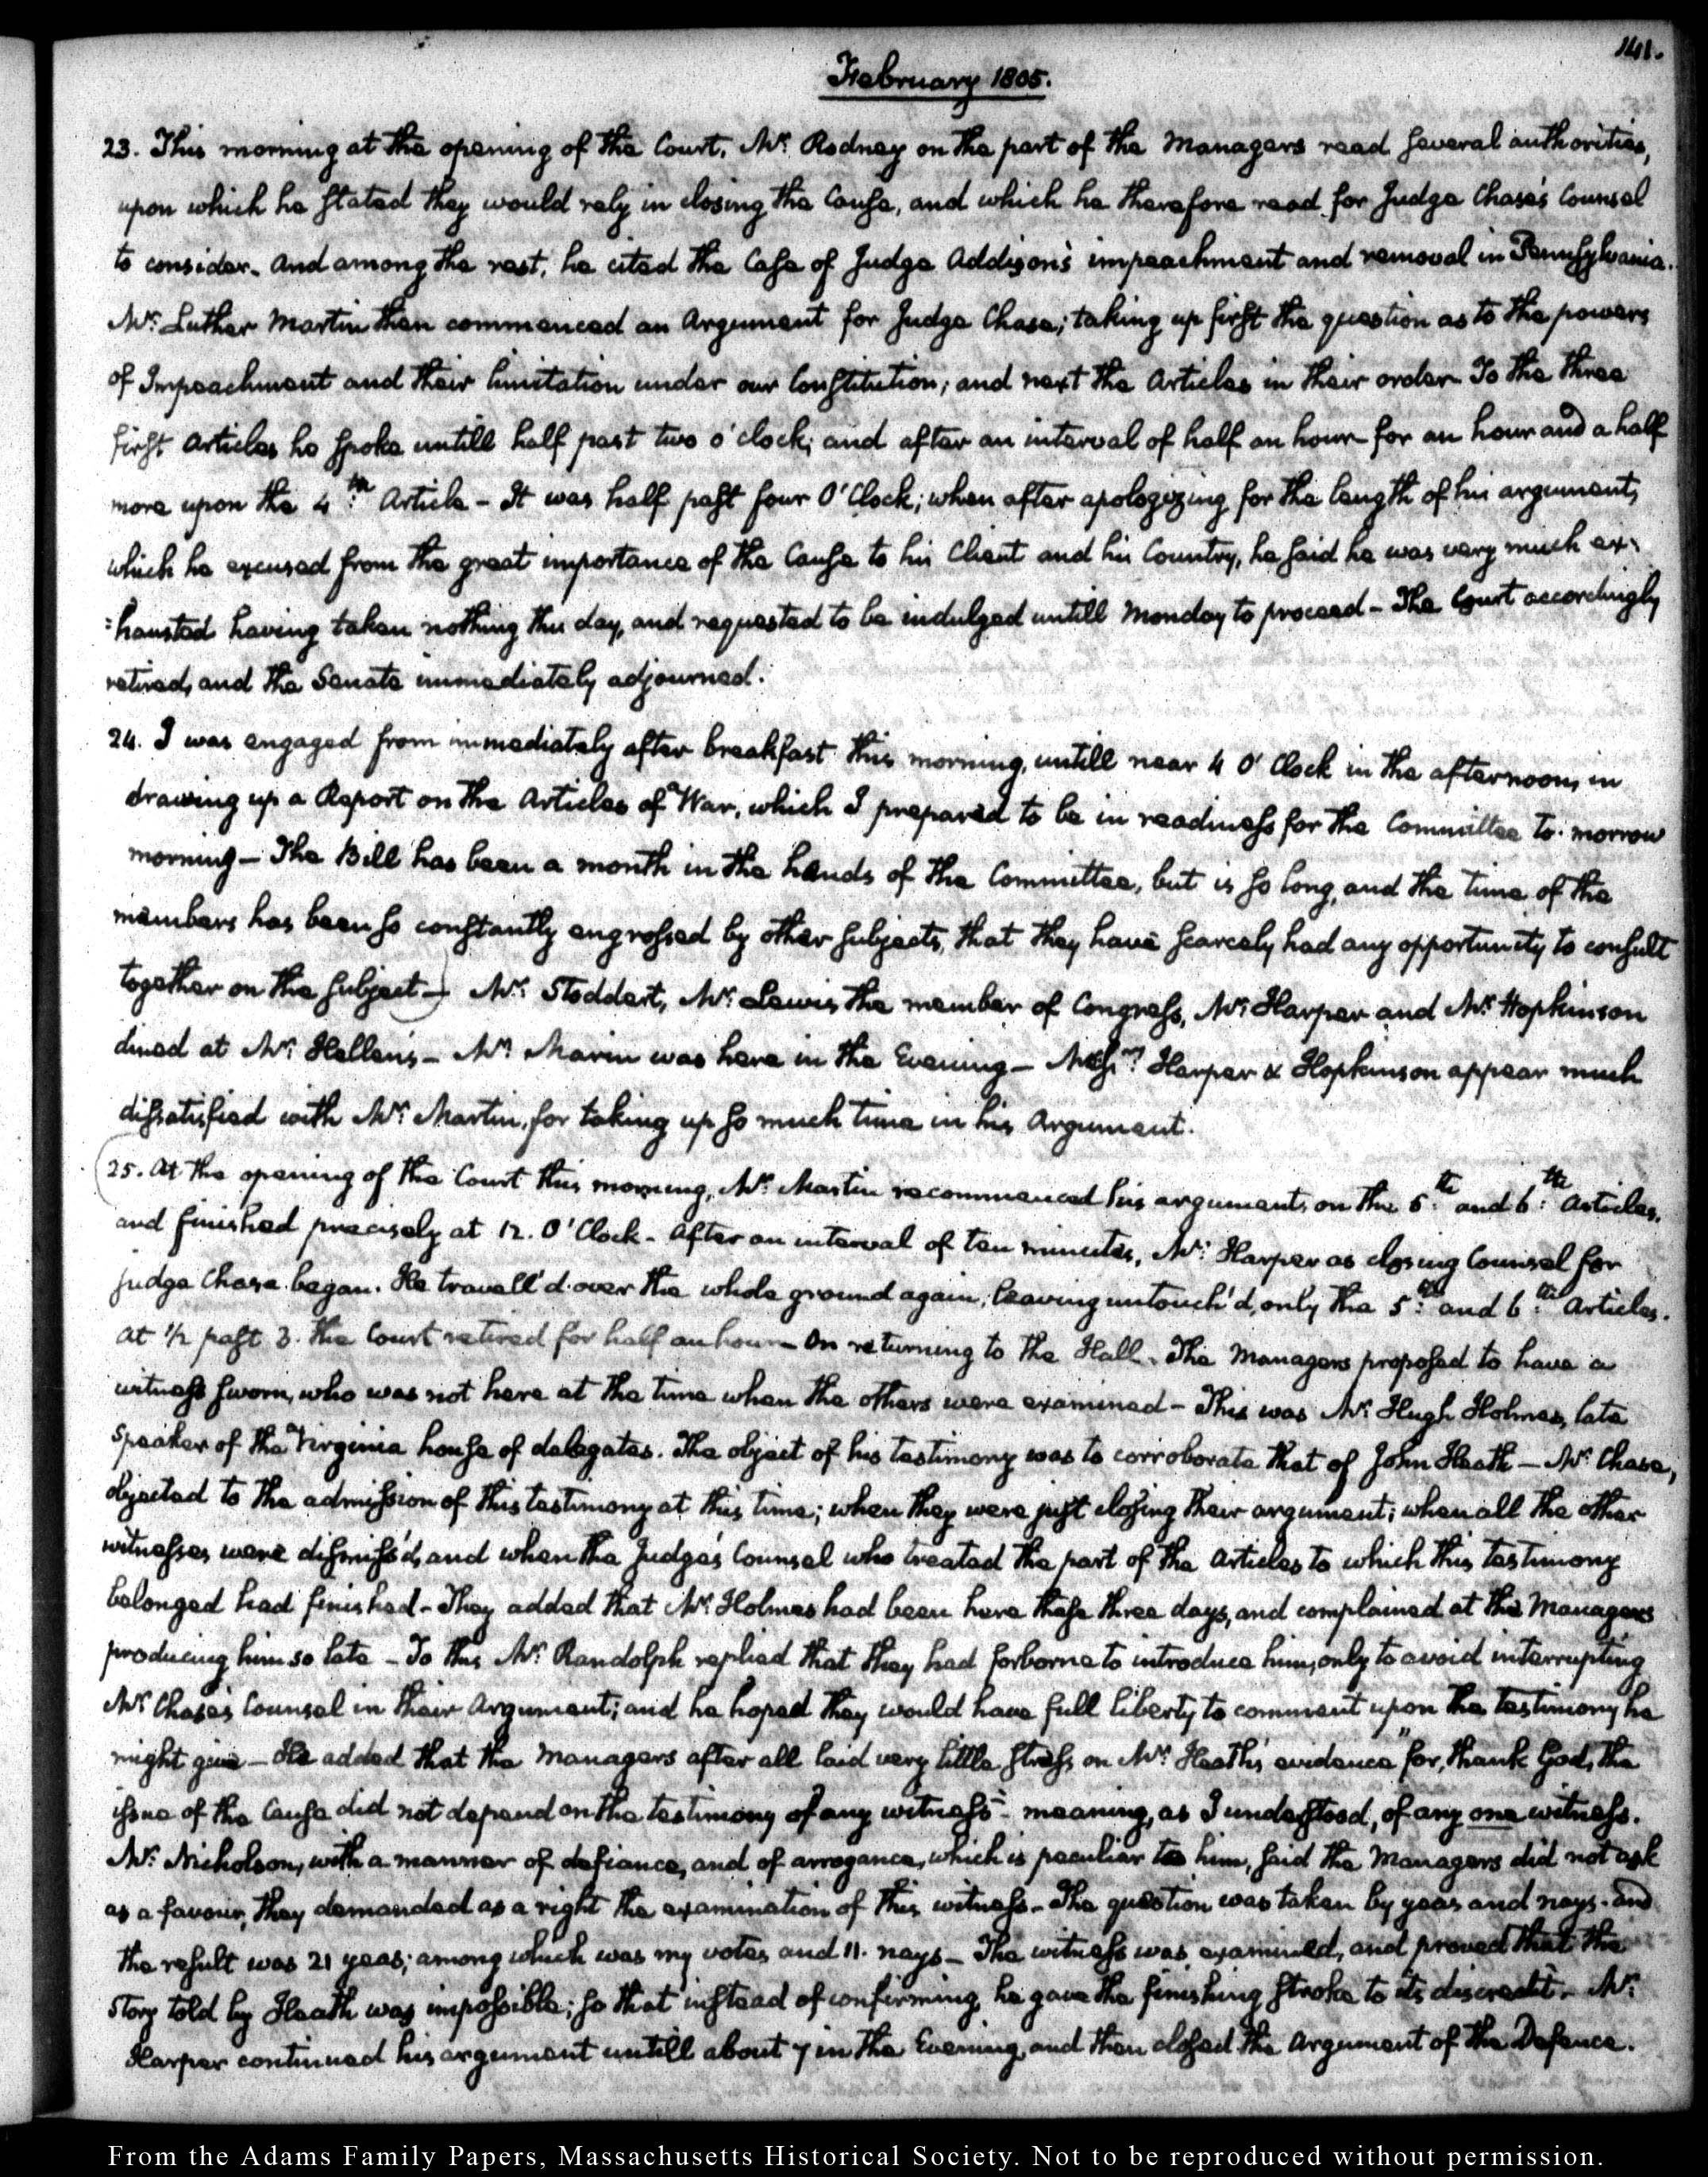 141.
February 1805.
23. This morning at the opening of the Court, Mr. Rodney on the part of the Managers read several authorities,
upon which he stated they would rely in closing the Cause, and which he therefore read for Judge Chase's Counsel
to consider. And among the rest, he cited the Case of Judge Addison's impeachment and removal in Pennsylvania.
Mr. Luther Martin then commenced an Argument for Judge Chase; taking up first the question as to the powers
of Impeachment and their limitation under our Constitution; and next the Articles in their order. To the three
first Articles he spoke untill half past two o'clock; and after an interval of half an hour for an hour and a half
more upon the 4th. Article - It was half past four O'Clock; when after apologizing for the length of his argument,
which he excused from the great importance of the Cause to his Client and his Country, he said he was very much ex-
=hausted having taken nothing this day, and requested to be indulged untill Monday to proceed - The Court accordingly
retired, and the Senate immediately adjourned.
24. I was engaged from immediately after breakfast this morning, untill near 4 O'Clock in the afternoon, in
drawing up a Report on the Articles of War, which I prepared to be in readiness for the Committee to-morrow
morning - The Bill has been a month in the hands of the Committee, but is so long, and the time of the
members has been so constantly engrossed by other subjects, that they have scarcely had any opportunity to consult
together on the subject - Mr. Stoddert, Mr. Lewis the member of Congress, Mr. Harper and Mr. Hopkinson
dined at Mr. Hellen's - Mr. Marin was here in the Evening - Messrs. Harper & Hopkinson appear much
dissatisfied with Mr. Martin, for taking up so much time in his Argument.
25. At the opening of the Court this morning, Mr. Martin recommenced his argument, on the 5th. and 6th. Articles.
and finished precisely at 12. O'Clock - After an interval of ten minutes, Mr. Harper as closing Counsel for
Judge Chase began. He travell'd over the whole ground again, leaving untouch'd, only the 5th. and 6th. Articles.
At 1/2 past 3. the Court retired for half an hour - On returning to the Hall, The Managers proposed to have a
witness sworn, who was not here at the time when the others were examined - This was Mr. Hugh Holmes, late
Speaker of the Virginia house of delegates. The object of his testimony was to corroborate that of John Heath - Mr. Chase,
objected to the admission of this testimony at this time; when they were just closing their argument; when all the other
witnesses were dismiss'd, and when the Judge's Counsel who treated the part of the Articles to which this testimony
belonged had finished - They added that Mr. Holmes had been here these three days, and complained at the Managers
producing him so late - To this Mr. Randolph replied that they had forborne to introduce him, only to avoid interrupting
Mr. Chase's Counsel in their Argument; and he hoped they would have full liberty to comment upon the testimony he
might give - He added that the Managers after all laid very little stress on Mr. Heath's evidence "for, thank God, the
issue of the Cause did not depend on the testimony of any witness" - meaning, as I understood, of any one witness.
Mr. Nicholson, with a manner of defiance, and of arrogance, which is peculiar to him, said the Managers did not ask
as a favour, they demanded as a right the examination of this witness - The question was taken by yeas and nays - and
the result was 21 yeas; among which was my vote, and 11. nays - The witness was examined, and proved that the
story told by Heath was impossible; so that instead of confirming, he gave the finishing stroke to its discredit. Mr.
Harper continued his argument untill about 7 in the Evening, and then closed the Argument of the Defence.
From the Adams Family Papers, Massachusetts Historical Society. Not to be reproduced without permission.